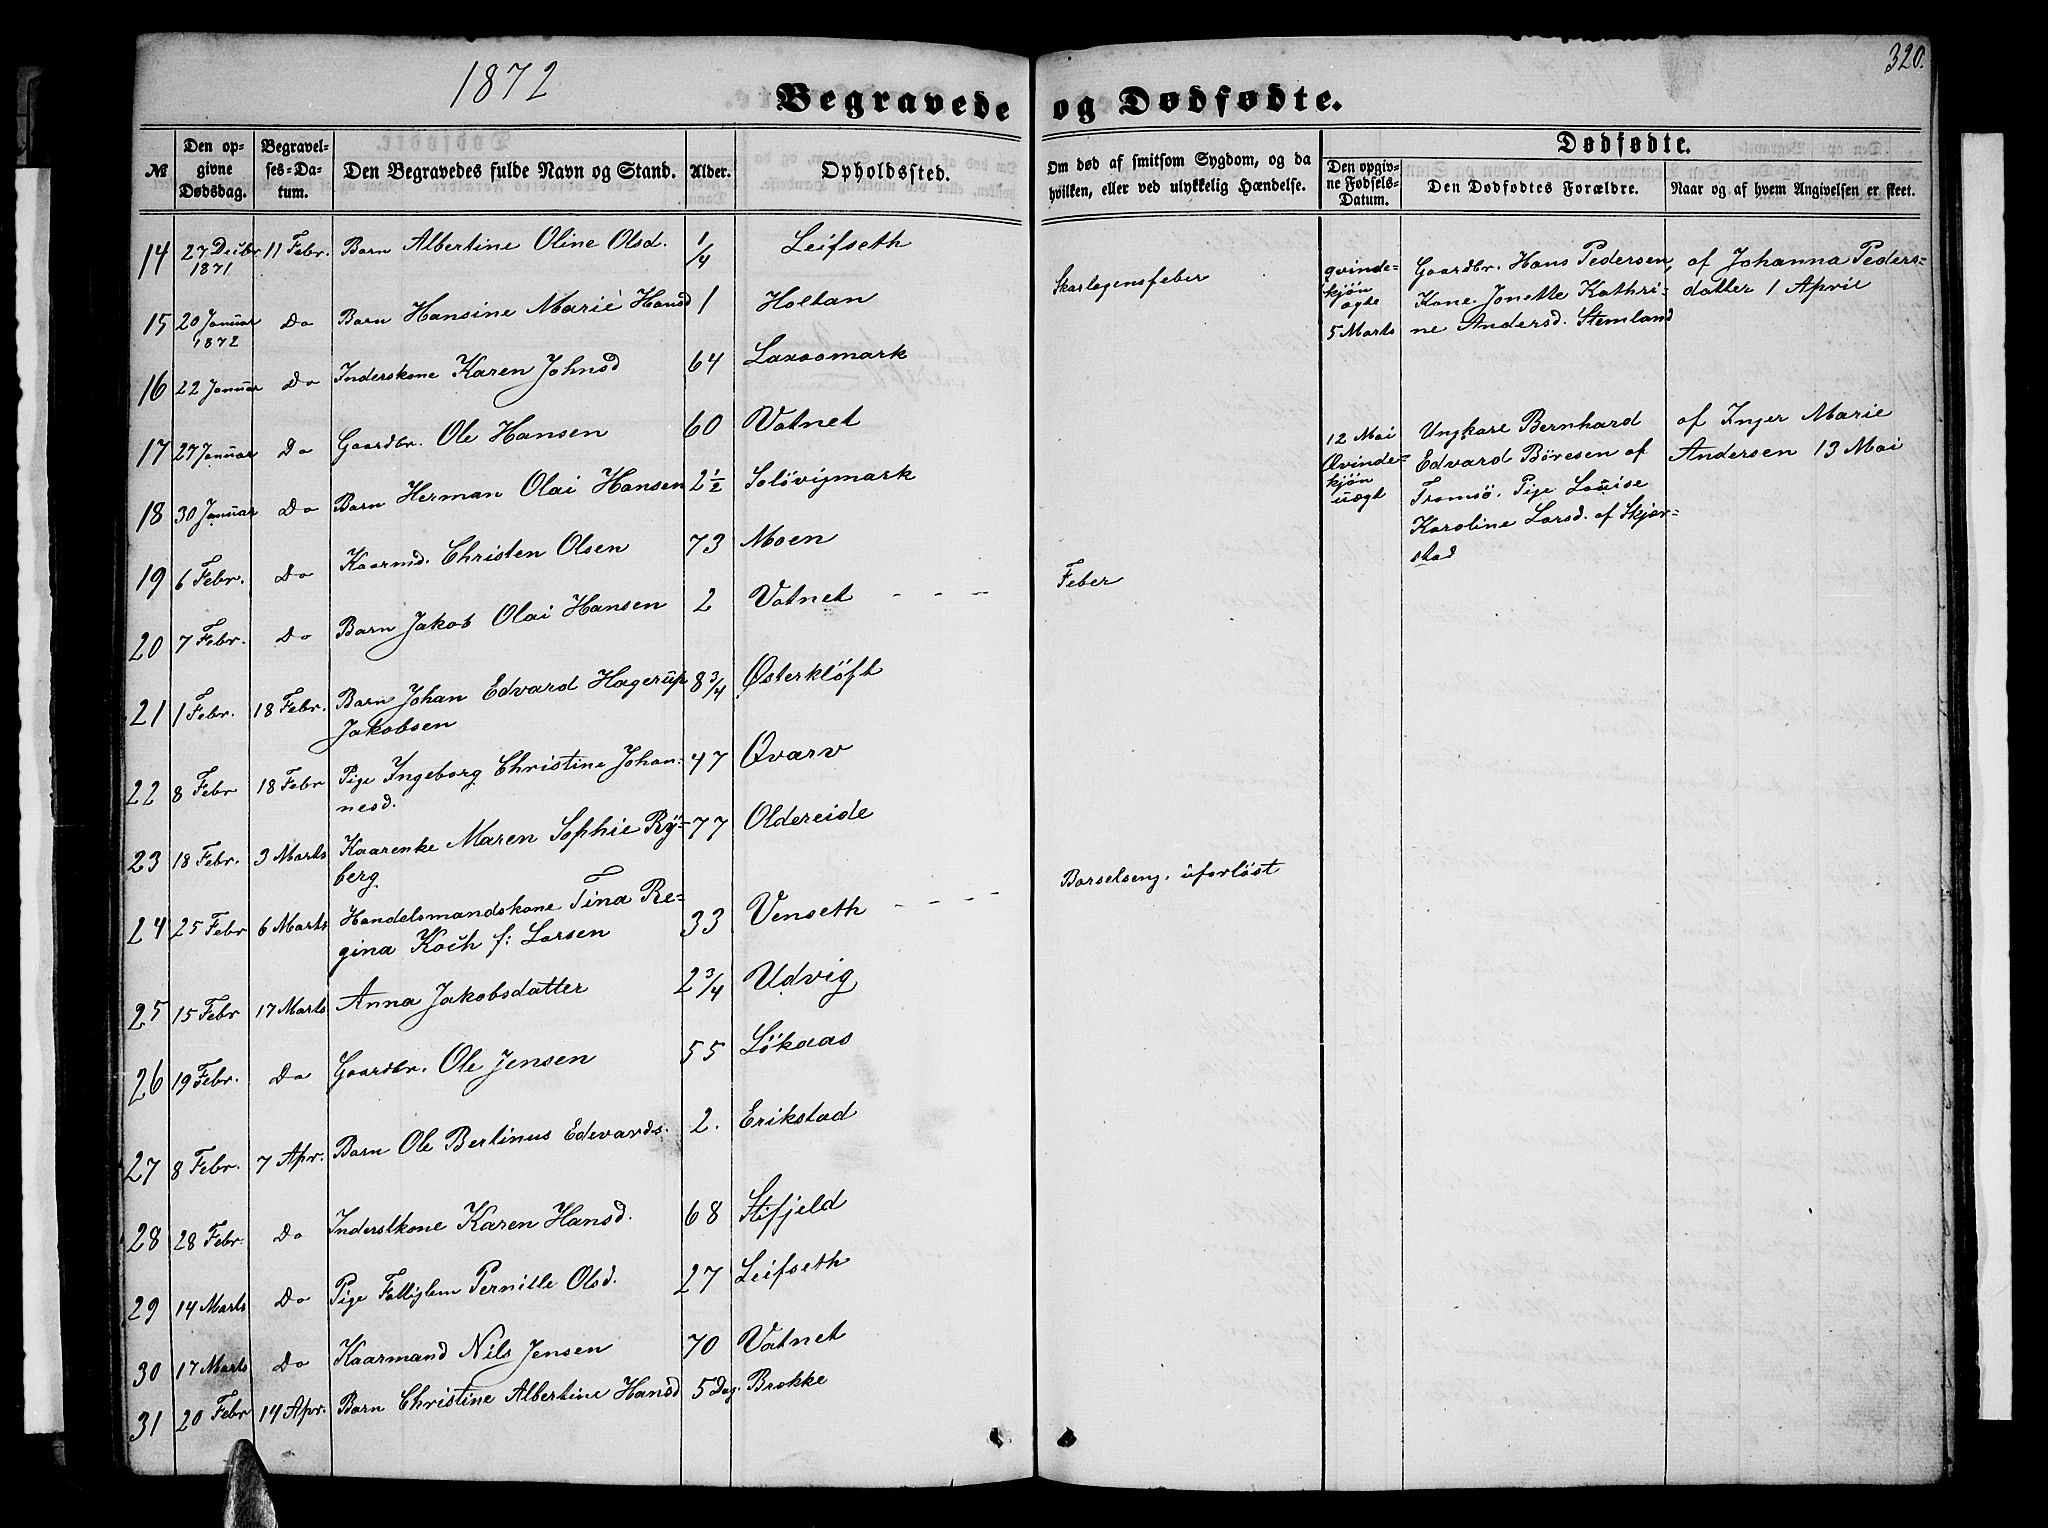 320.
1872
Begravede og Dødfødte.
№
Den op-
givne
Dødsdag.
Begravel-
ses-Da-
tum.
Den Begravedes fulde Navn og Stand.
Alder.
Opholdssted.
Om død af smitsom Sygdom, og da
hvilken, eller ved ulykkelig Hændelse.
Dødfødte.
Den opgiv-
ne Fødsels-
Datum.
Den Dødfødtes Forældre.
Naar og af hvem Angivelsen er skeet.
14 27 Decbr 1871 11 Febr. Barn Albertine Oline Olsd. 1/4 Leifseth
15 20 Januar 1872 Do Barn Hansine Marie Hansd 1 Holtan Skarlagensfeber
16 22 Januar Do Inderskone Karen Johnsd 64 Laxaamark
17 27 Januar Do Gaardbr. Ole Hansen 60 Vatnet
18 30 Januar Do Barn Herman Olai Hansen 2½ Soløvigmark
19 6 Febr. Do Kaarmd. Christen Olsen 73 Moen
20 7 Febr. Do Barn Jakob Olai Hansen 2 Vatnet - - - Feber
21 1 Febr. 18 Febr. Barn Johan Edvard Hagerup 8¾ Østerkløft
Jakobsen
22 8 Febr 18 Febr Pige Ingeborg Christine Johan- 47 Qvarv
nesd.
23 18 Febr. 3 Marts Kaarenke Maren Sophie Ry- 77 Oldereide
berg
24 25 Febr 6 Marts Handelsmandskone Tina Re- 33 Venseth - - - Barselseng, uforløst
gina Koch f: Larsen
25 15 Febr 17 Marts Anna Jakobsdatter 2¾ Udvig
26 19 Febr. Do Gaardbr. Ole Jensen 55 Løkaas
27 8 Febr. 7 Apr. Barn Ole Bertinus Edevards. 2. Erikstad
28 28 Febr. Do Inderstkone Karen Hansd. 68 Stifjeld
29 14 Marts Do Pige Pernille Olsd. 27 Leifseth
30 17 Marts Do Kaarmand Nils Jensen 70 Vatnet
31 20 Febr 14 Apr. Barn Christine Albertine Hansd 5 Dag. Brekke
qvinde-
kjøn
ægte
5 Marts
Gaardbr. Hans Pedersen,
Kone Jonette Kathri-
ne Andersd. Stemland
af Johanna Peders-
datter 1 April
12 Mai
Qvinde-
kjøn
uægt
Ungkarl Bernhard
Edvard Børesen af
Tromsø, Pige Louise
Karoline Larsd. af Skjer-
stad
af Inger Marie
Andersen 13 Mai